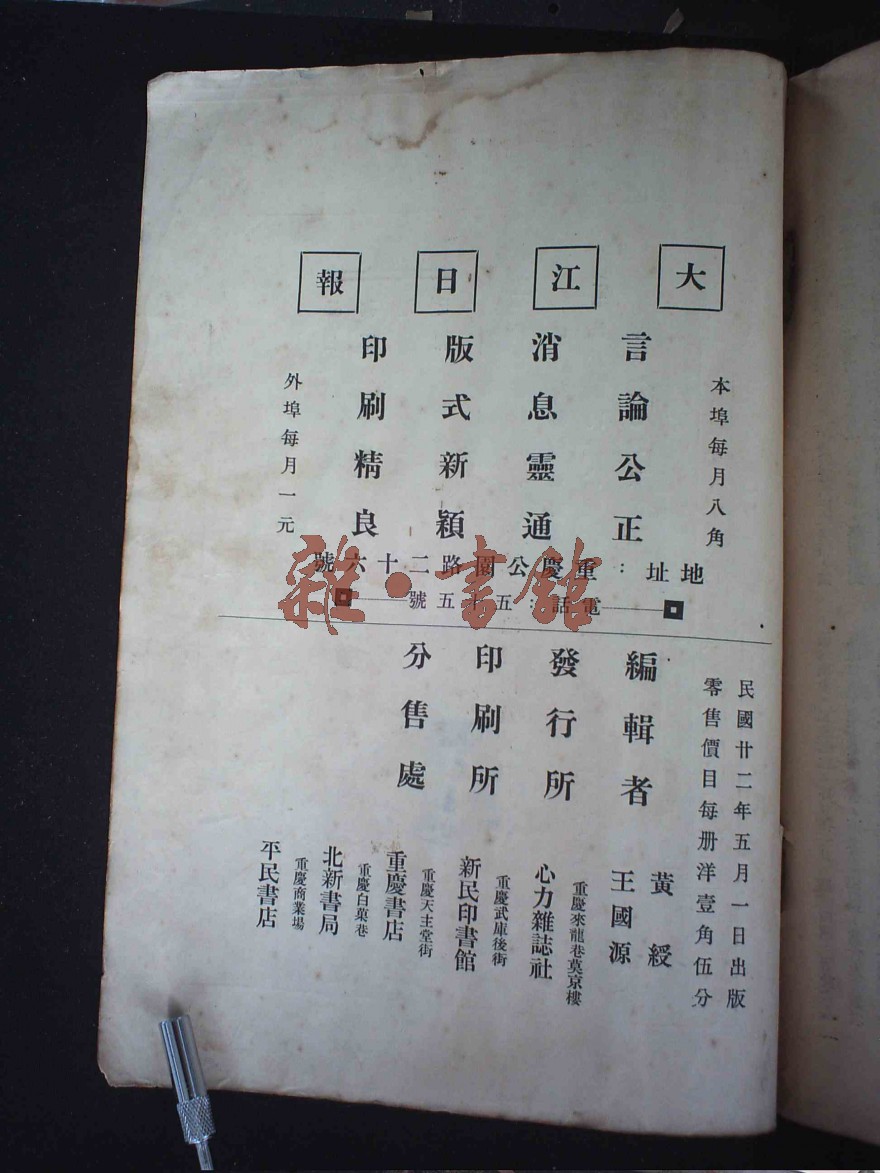 大江日報
本埠每月八角
言論公正
消息靈通
版式新穎
印刷精良
外埠每月一元
地址：重慶公園路二十六號
電話：五十五號
民國廿二年五月一日出版
零售價目每册洋壹角伍分
編輯者
黃綬
王國源
發行所
重慶來龍巷莫京樓
心力雜誌社
印刷所
重慶武庫後街
新民印書館
分售處
重慶天主堂街
重慶書店
重慶白菓巷
北新書局
重慶商業場
平民書店
雜·書館